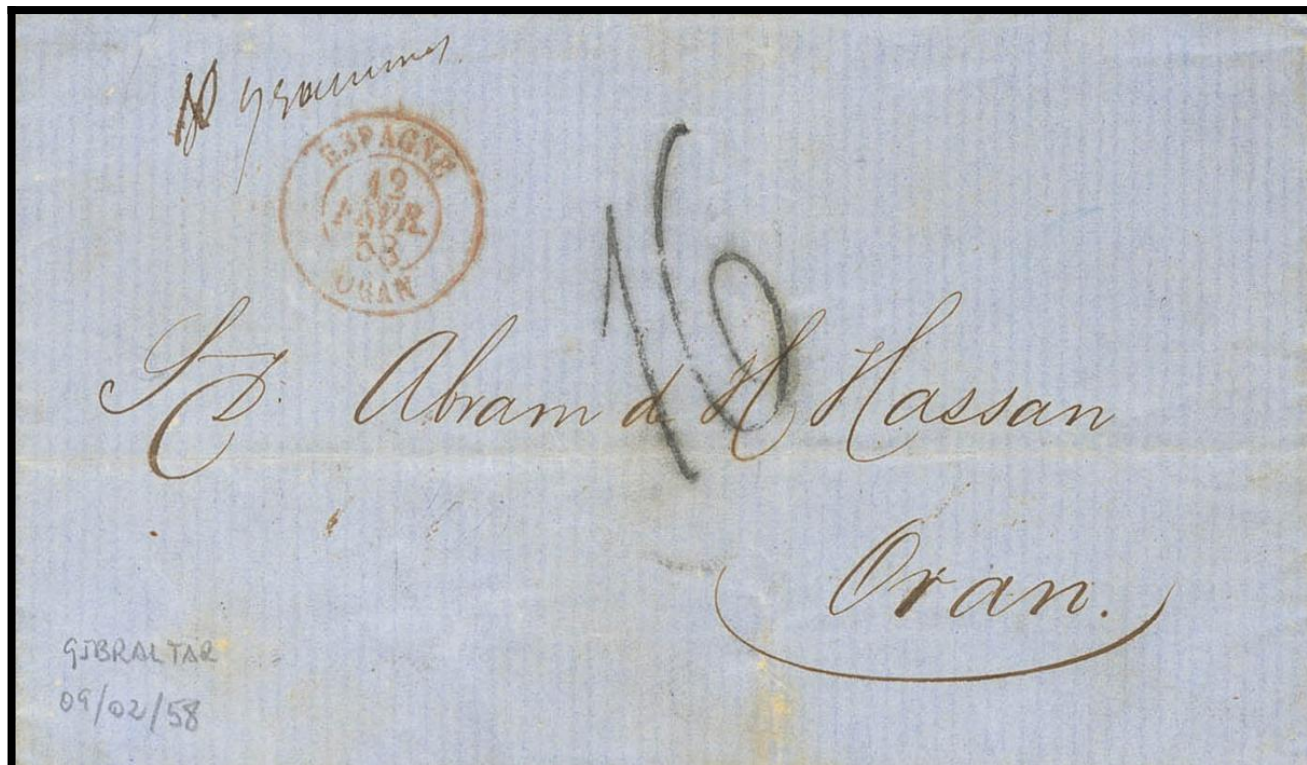 grammes
ESPAGNE
12
FEVR.
58
ORAN
16
Sr. D. Abram d H Hassan
Oran.
GIBRALTAR
09/02/58